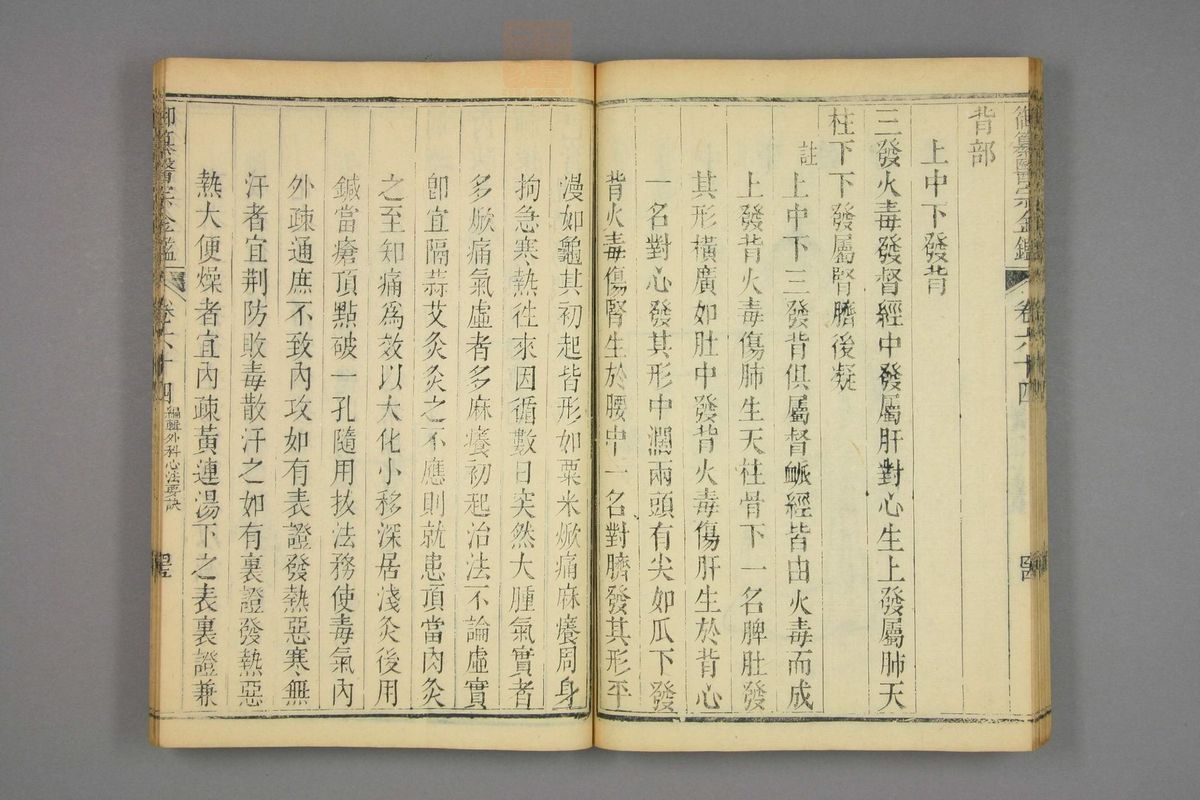 御纂醫宗金鑑 卷六十四
背部
上中下發背
三發火毒發督經中發屬肝對心生上發屬肺天
柱下下發屬腎臍後凝
註上中下三發背俱屬督脈經皆由火毒而成
上發背火毒傷肺生天柱骨下一名脾肚發
其形橫廣如肚中發背火毒傷肝生於背心
一名對心發其形中濶兩頭有尖如瓜下發
背火毒傷腎生於腰中一名對臍發其形平
漫如龜其初起皆形如粟米焮痛麻癢周身
拘急寒熱徃來因循數日突然大腫氣實者
多焮痛氣虛者多麻癢初起治法不論虛實
卽宜隔蒜艾灸灸之不應則就患頂當肉灸
之至知痛爲效以大化小移深居淺灸後用
鍼當瘡頂點破一孔隨用拔法務使毒氣內
外疎通庶不致內攻如有表證發熱惡寒無
汗者宜荆防敗毒散汗之如有裏證發熱惡
熱大便燥者宜內疎黃連湯下之表裏證兼
御纂醫宗金鑑 卷六十四 編輯外科心法要訣